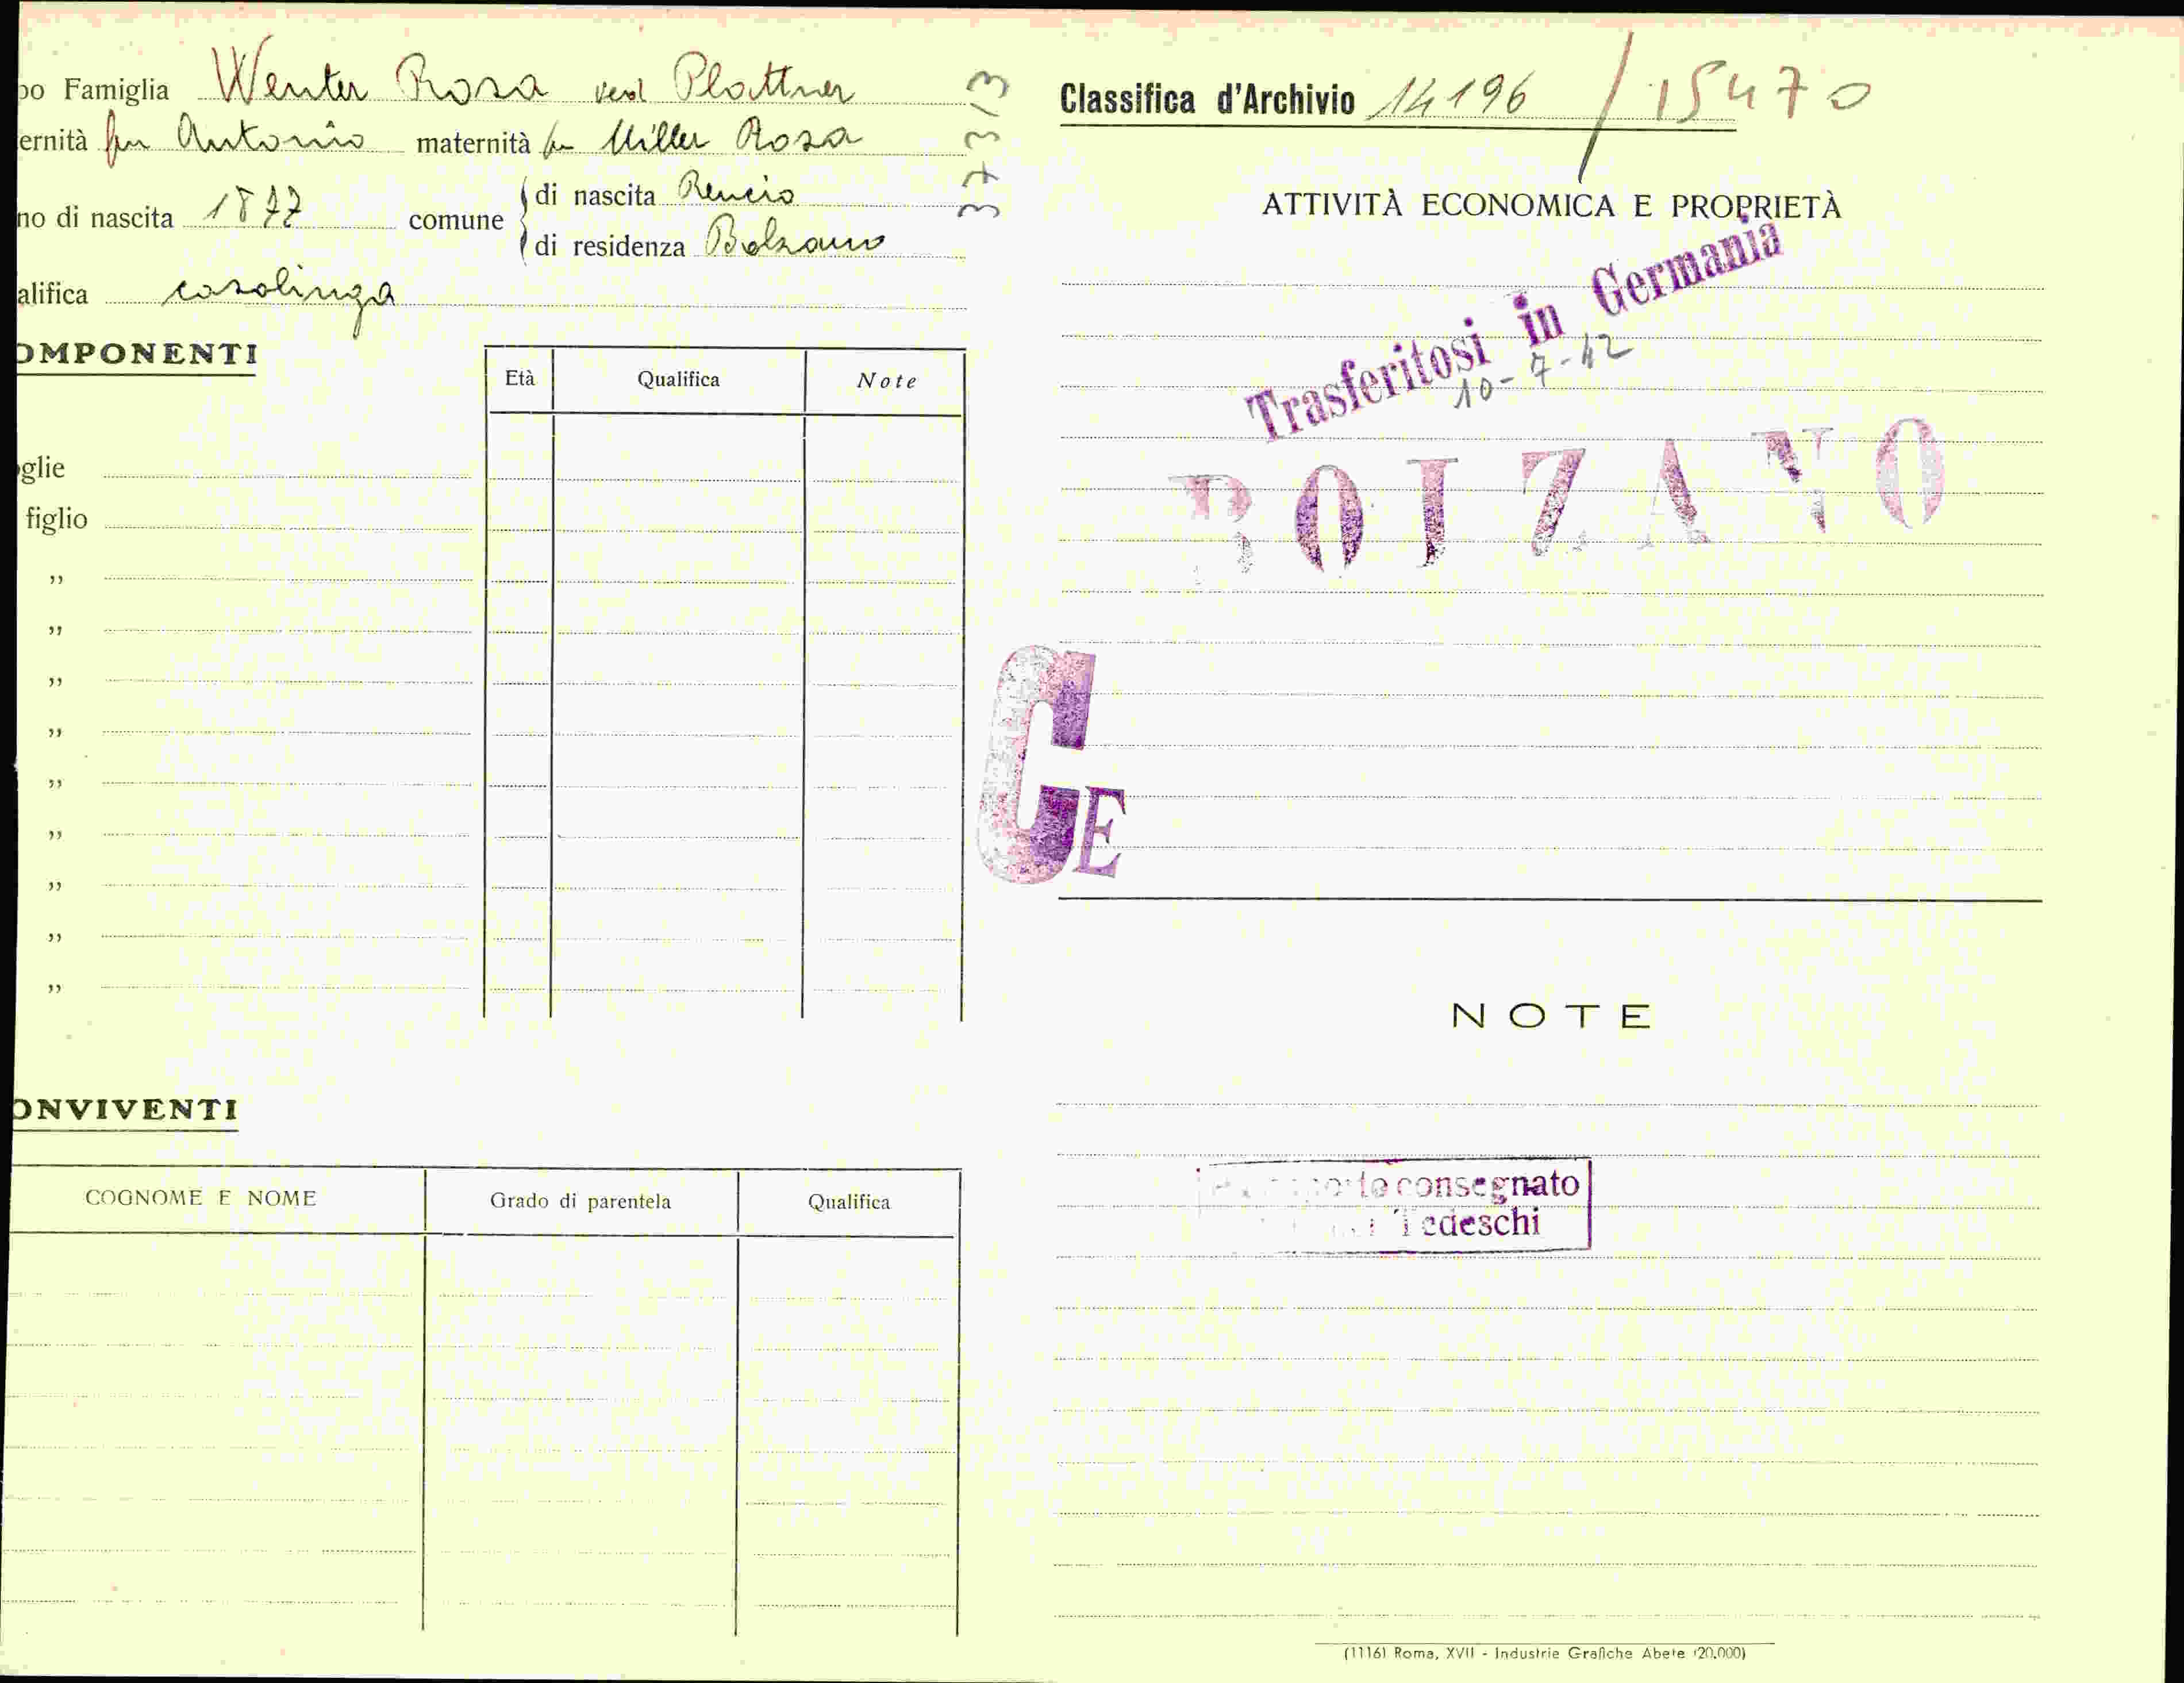 po Famiglia Wenter Rosa ved Plattner
ernità fu Antonio maternità fu Miller Rosa
no di nascita 1877 comune di nascita Rencio
di residenza Bolzano
alifica casolinga
37313
OMPONENTI
Età Qualifica Note
glie
figlio
"
"
"
"
"
"
"
"
"
ONVIVENTI
COGNOME E NOME Grado di parentela Qualifica
Classifica d'Archivio 14196 / 15470
ATTIVITÀ ECONOMICA E PROPRIETÀ
Trasferitosi in Germania
10-7-42
BOLZANO
GE
NOTE
consegnato
Tedeschi
(1116) Roma, XVII - Industrie Grafiche Abete (20.000)